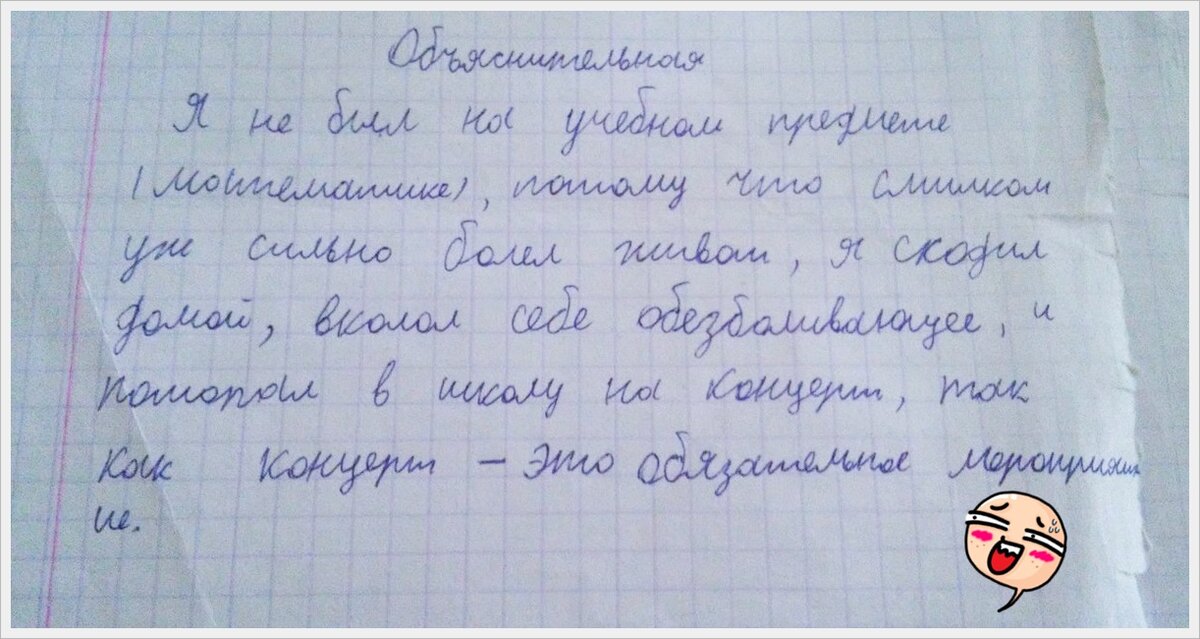 Объяснительная
Я не был на учебном предмете
(математике), потому что слишком
уж сильно болел живот, я сходил
домой, вколол себе обезболивающее, и
потопал в школу на концерт, так
как концерт – это обязательное мероприят
ие.